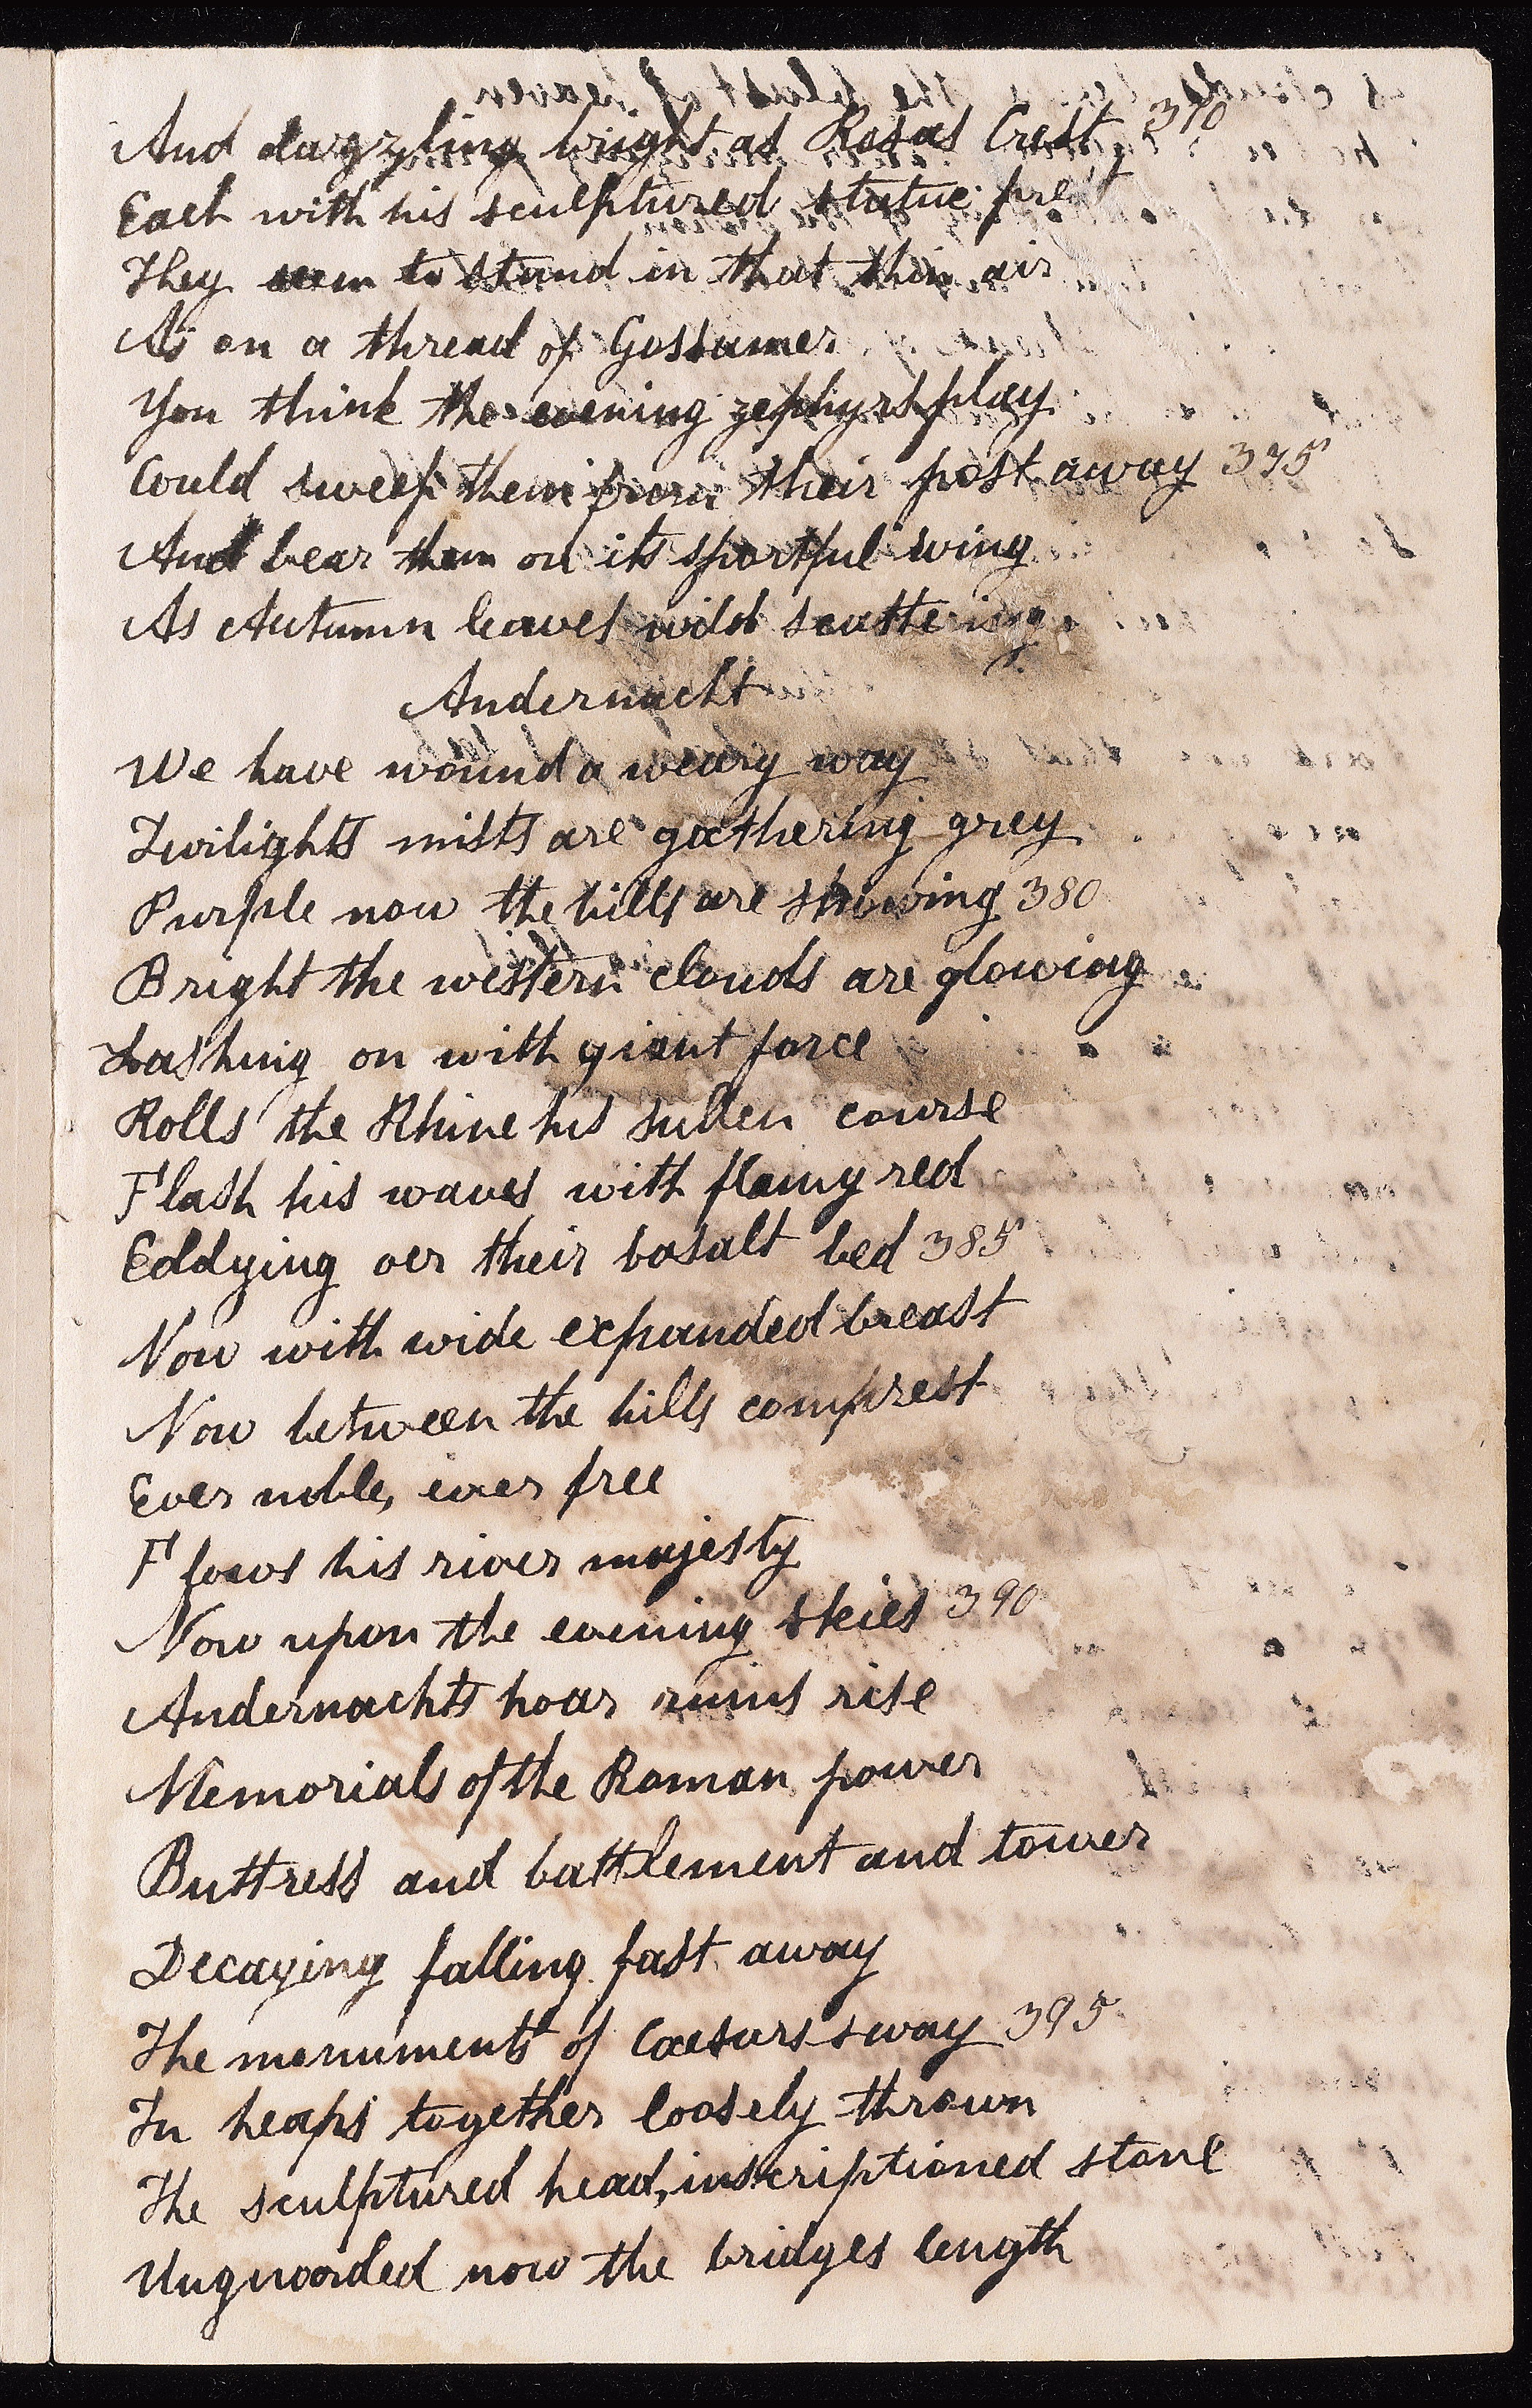 And dazzling bright as Rosas Crest 370
Each with his sculptured statue prest
They seem to stand in that thin air
As on a thread of Gossamer
You think the evening zephyrs play
Could sweep them from their post away 375
And bear them on its sportful wing
As Autumn leaves wild scattering.
Andernacht
We have wound a weary way
Twilights mists are gathering grey
Purple now the hills are showing 380
Bright the western clouds are glowing
Lashing on with giant force
Rolls the Rhine his sullen course
Flash his waves with flamy red
Eddying oer their basalt bed 385
Now with wide expanded breast
Now between the hills comprest
Ever noble, ever free
Flows his river majesty
Now upon the evening skies 390
Andernachts hoar ruins rise
Memorials of the Roman power
Buttress and battlement and tower
Decaying falling fast away
The monuments of Caesars sway 395
In heaps together loosely thrown
The sculptured head, inscriptioned stone
Unguarded now the bridges length